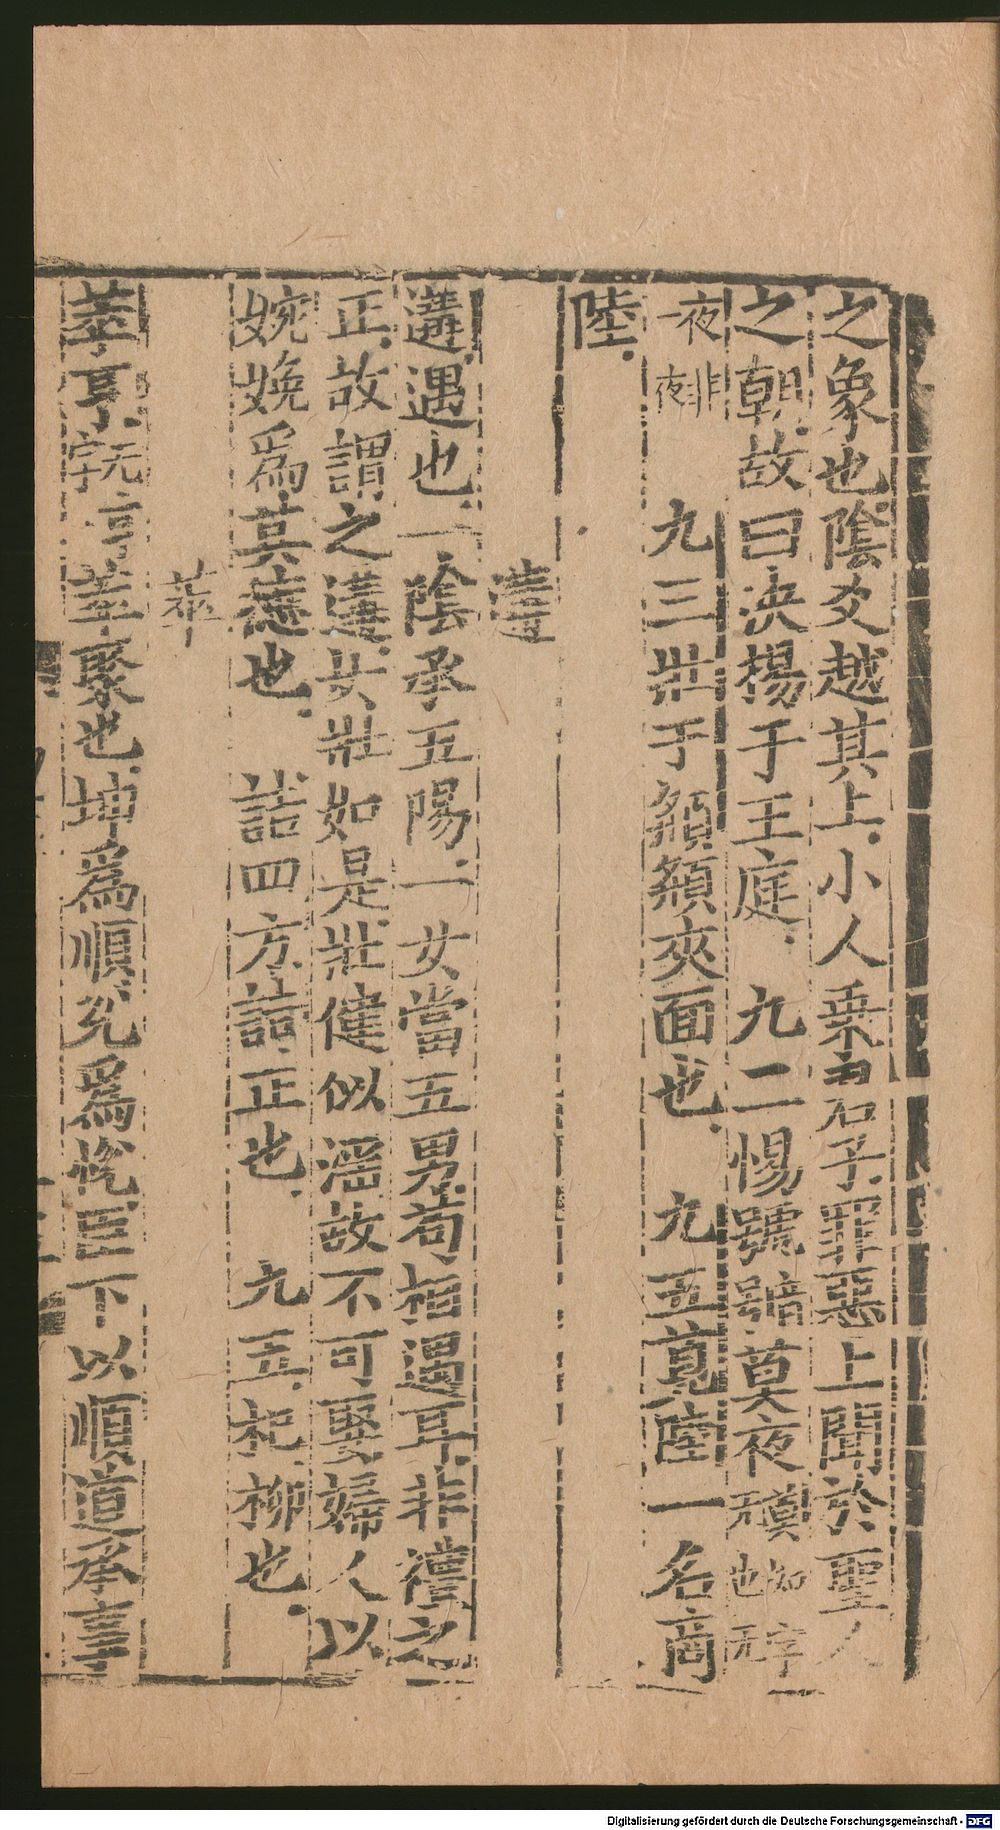 之象也陰爻越其上小人乗君子罪惡上聞於聖人
之朝故曰決揚于王庭 九二惕號號莫夜莫如字无也无
一夜非夜 九三壯于頯頯夾面也 九五莧陸一名商
陸
遘
遘遇也一陰承五陽一女當五男苟相遇耳非禮之
正故謂之遘女壯如是壯健似淫故不可娶婦人以
婉娩爲其德也 誥四方誥正也 九五杞柳也
萃
萃亨无亨字萃聚也坤爲順兊爲恱臣下以順道承事
Digitalisierung gefördert durch die Deutsche Forschungsgemeinschaft - DFG